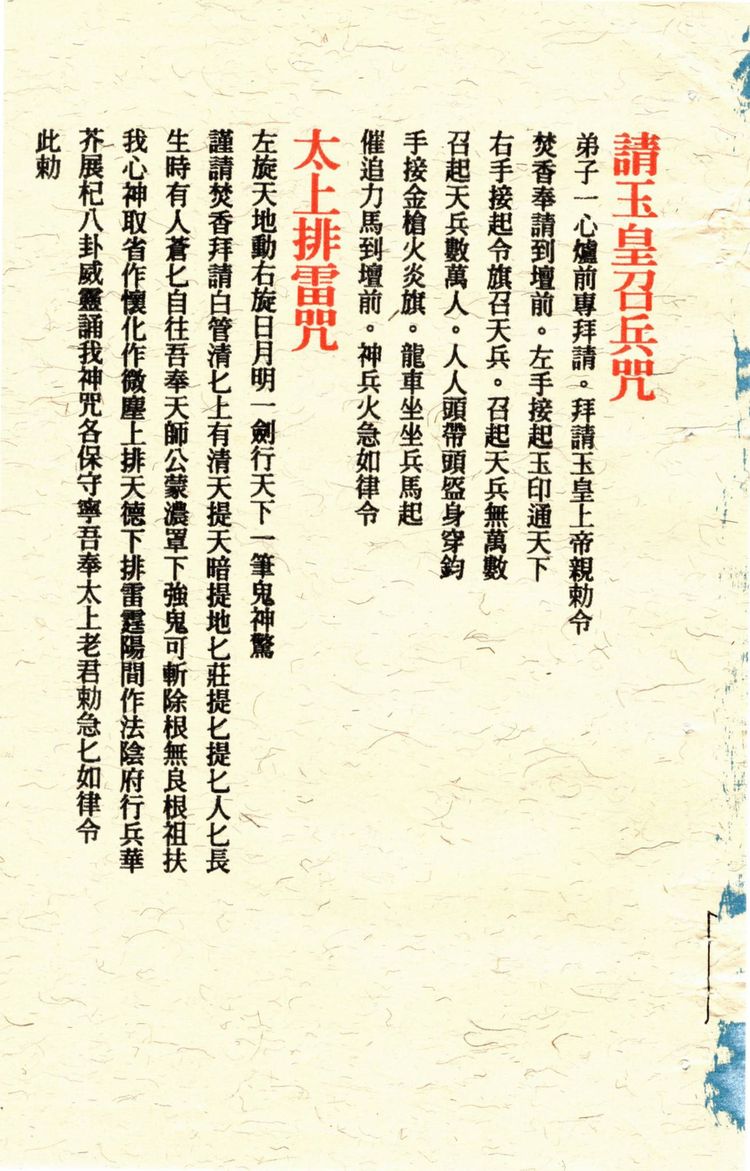 請玉皇召兵咒
弟子一心爐前專拜請。拜請玉皇上帝親勅令
焚香奉請到壇前。左手接起玉印通天下
右手接起令旗召天兵。召起天兵無萬數
召起天兵數萬人。人人頭帶頭盔身穿鈎
手接金槍火炎旗。龍車坐坐兵馬起
催追力馬到壇前。神兵火急如律令
太上排雷咒
左旋天地動右旋日月明一劍行天下一筆鬼神驚
謹請焚香拜請白管清匕上有清天提天暗提地匕莊提匕提匕人匕長
生時有人蒼匕自往吾奉天師公蒙濃罩下強鬼可斬除根無良根祖扶
我心神取省作懷化作微塵上排天德下排雷霆陽間作法陰府行兵華
芥展杞八卦威靈誦我神咒各保守寧吾奉太上老君勅急匕如律令
此勅